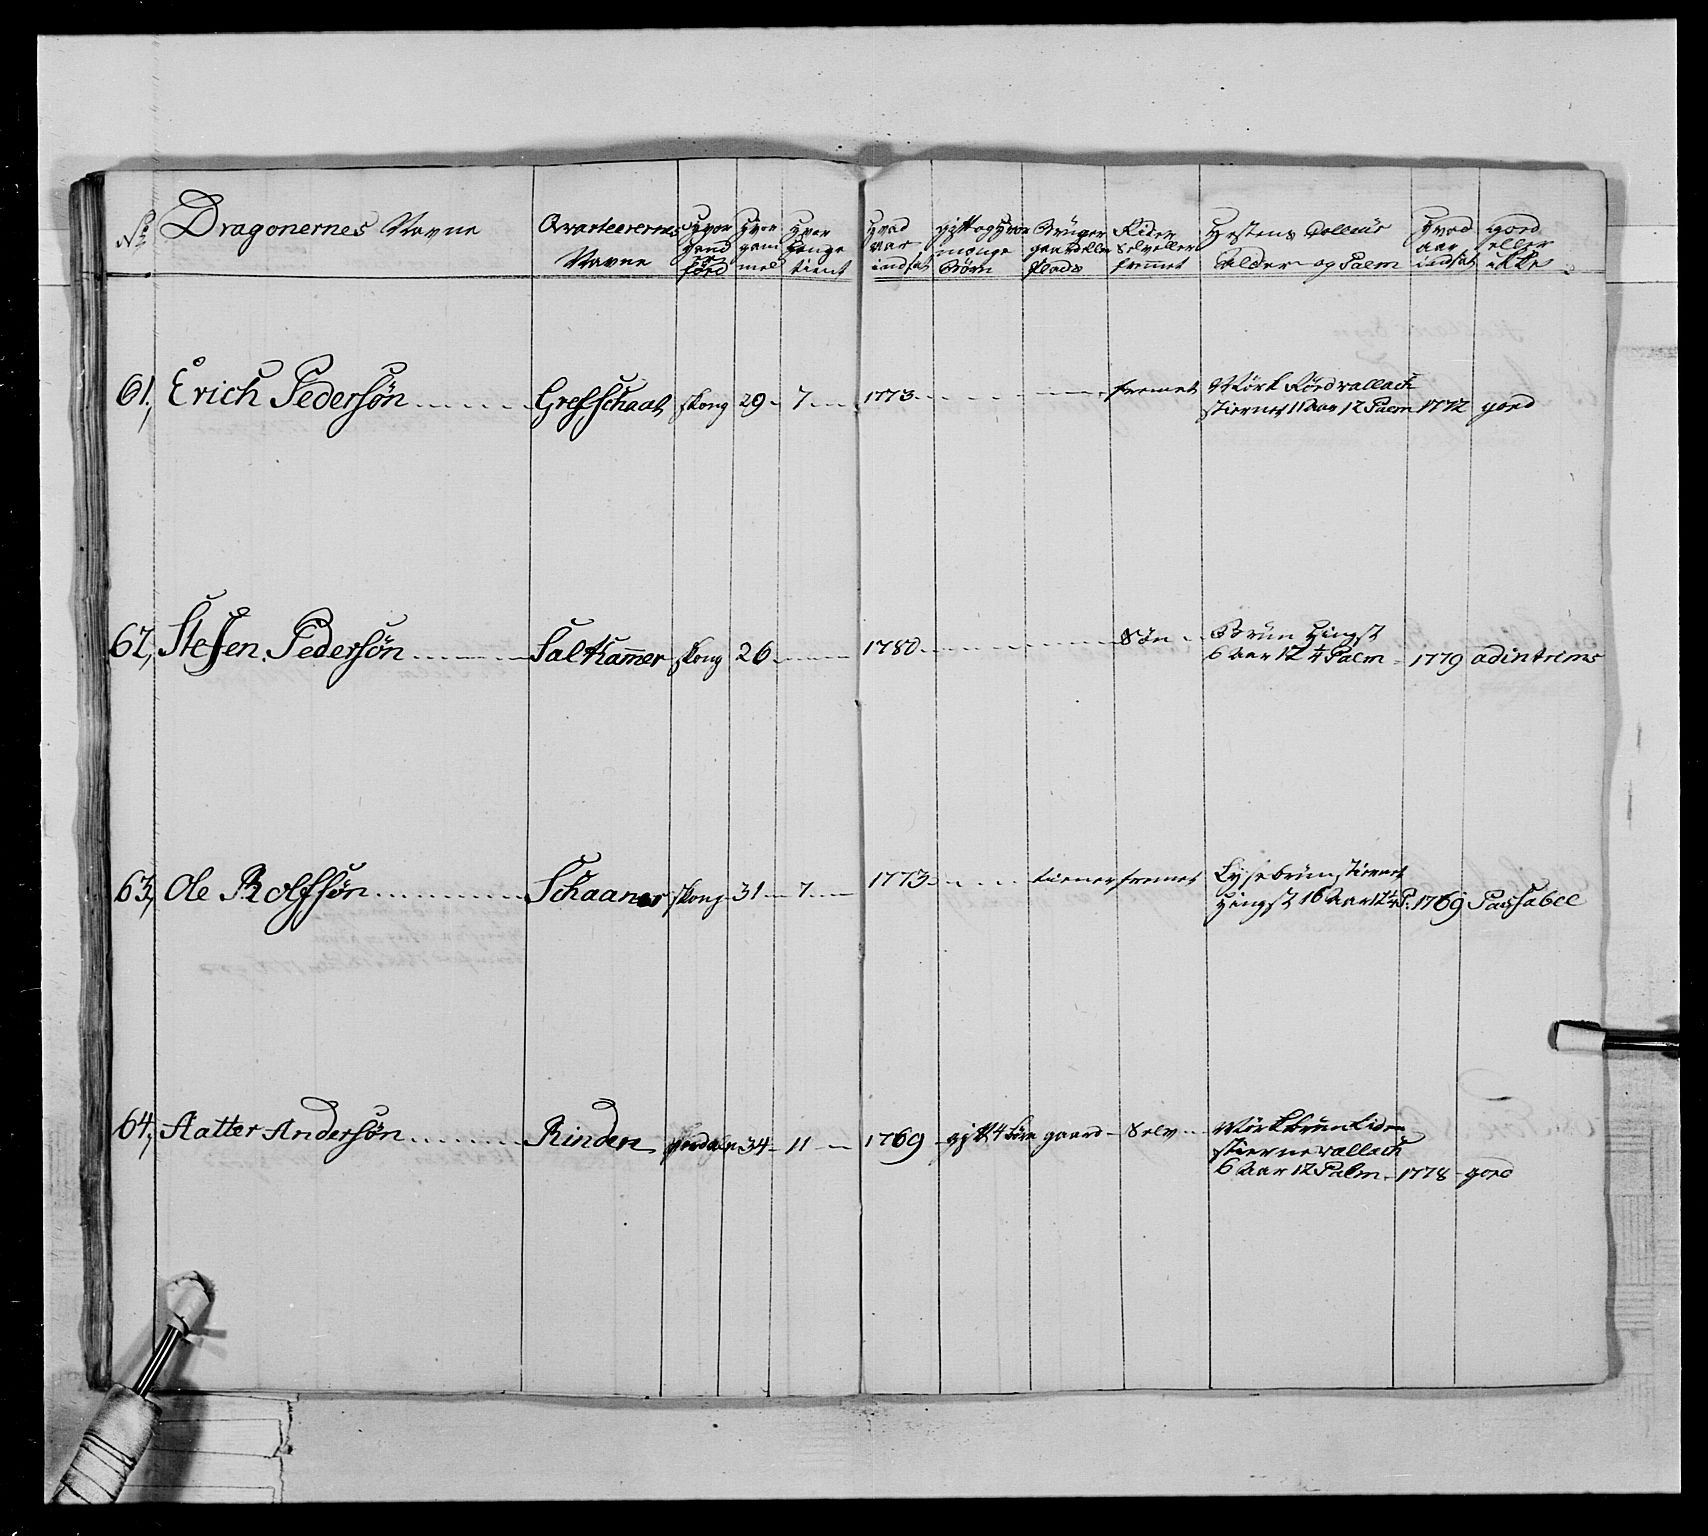 No Dragonernes Navne Qvarteerernes Navne Hvor hand er föed Hvor gam mel Hvor Længe tient Hvad aar indsat gift og Hvor mange Börn Brüger gaard eller plads Rider Selv eller fremmet Hestens Colleur Alder og Palm Hvad aar indsat goed eller ikke
61, Erich Pedersøn Grefschaat skong 29 7 1773 fremet Mörk Röed vallach
stiernet 11 Aar 12 Palm 1772 goed
62, Steffen Pedersøn Saltkammer skong 26 1780 Sön Brün Hingst
6 Aar 12 1/4 Palm 1779 adintrims
63, Ole Rolfsøn Schaaner skong 31 7 1773 tiener fremet Lysebrün stiernet
Hingst 16 Aar 12 1/4 P. 1769 Passabel
64, Aatter Andersøn Rinden 34 11 1769 gift 4 börn gaard Selv Mörkbrün liden
stierne vallach
6 Aar 12 Palm 1778 goed